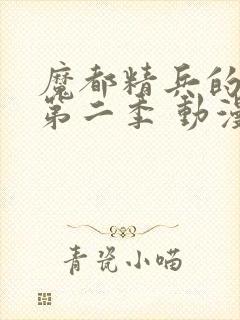 魔都精兵的
第二季 動漫
青瓷小喵